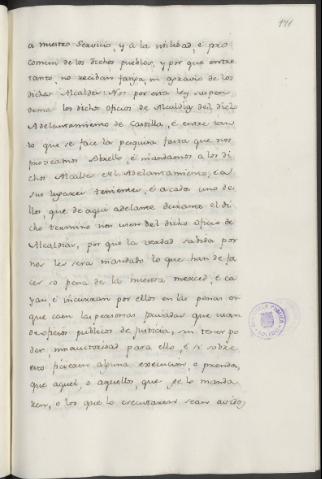 141
a nuestro Servicio, y à la utilidad, è pro
comun de los dichos pueblos, y por que entre
tanto, no reciban fatiga, ni agravio de los
dichos Alcaldes Nos por esta ley suspen
demos los dichos oficios de Alcaldia del dicho
Adelantamiento de Castilla, è entre tan
to que se face la pesquisa fasta que nos
proveamos sobrello, è mandamos a los di
chos Alcaldes del Adelantamiento, è a
sus lugares tenientes, è a cada uno de
llos, que de aqui adelante durante el di
cho termino non usen del dicho oficio de
Alcaldias, por que la verdad sabida por
nos les sera mandado lo que han de fa
cer so pena de la nuestra merced, è ca
yan è incurran por ellos en las penas en
que caen las personas privadas que usan
de oficios publicos de justicia, sin tener po
der, nin autoridad para ello, è si sobre
esto ficieren alguna execucion, o prendas,
que aquel, o aquellos que se lo manda
ren, o los que lo executaren sean avidos